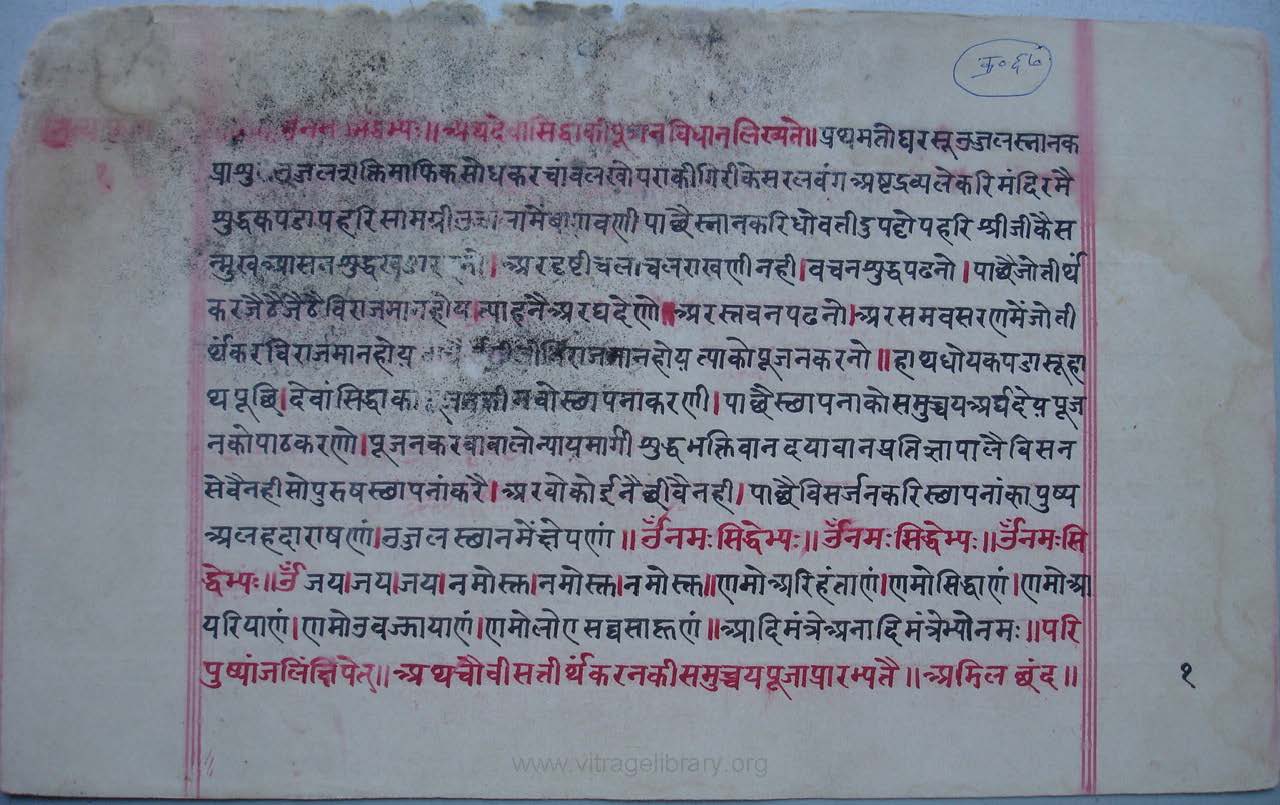 क्र० ६७
॥अथ देवासिद्धाकी पूजन विधान लिख्यते॥ प्रथम तो घरसू उजल स्नान क
उजल शक्ति माफिक सोधकर चांवल खोपराकी गिरी केसर लवंग अष्टद्रव्य लेकरि मंदिरमै
शुद्ध कपडा पहरि सामग्री पाछै स्नानकरि धोवती दुपट्टो पहरि श्रीजीकै स
न्मुख आसन शुद्ध । अर दृष्टी चलाचल राखणी नही। वचन शुद्ध पढनो। पाछै जो तीर्थं
कर जैठै जैठै विराजमान होय। त्याहनै अरघ देणो। अर स्तवन पढनो। अर समवसरणमें जो ती
र्थंकर विराजमान होय विराजमान होय त्याको पूजन करनो॥ हाथ धोय कपडासू हा
थ पूछि। देवां सिद्धाका स्छापना करणी। पाछै स्छापनाको समुच्चय अर्घ देय पूज
नको पाठ करणो। पूजन करवावालो न्यायमार्गी शुद्ध भक्तिवान दयावान प्रतिज्ञा पालै विसन
सेवै नही सो पुरुष स्छापनां करै। अरवो कोईनै छीवै नही। पाछै विसर्जन करि स्छापनांका पुष्य
अलहदा राषणां। उजल स्छानमें क्षेपणां॥ ॐ नमः सिद्धेभ्यः॥ ॐ नमः सिद्धेभ्यः॥ ॐ नमः सि
द्धेभ्यः॥ ॐ जय। जय। जय। नमोस्तु। नमोस्तु। नमोस्तु॥ णमो अरिहंताणं। णमो सिद्धाणं। णमो आ
यरियाणं। णमो उवज्झायाणं। णमो लोए सव्वसाहूणं॥ आदिमंत्रे अनादिमंत्रेभ्यो नमः॥ परि
पुष्पांजलिं क्षिपेत्॥ अथ चौवीस तीर्थंकरनकी समुच्चय पूजा प्रारभ्यतै॥ अडिल छंद॥
१
www.vitragelibrary.org